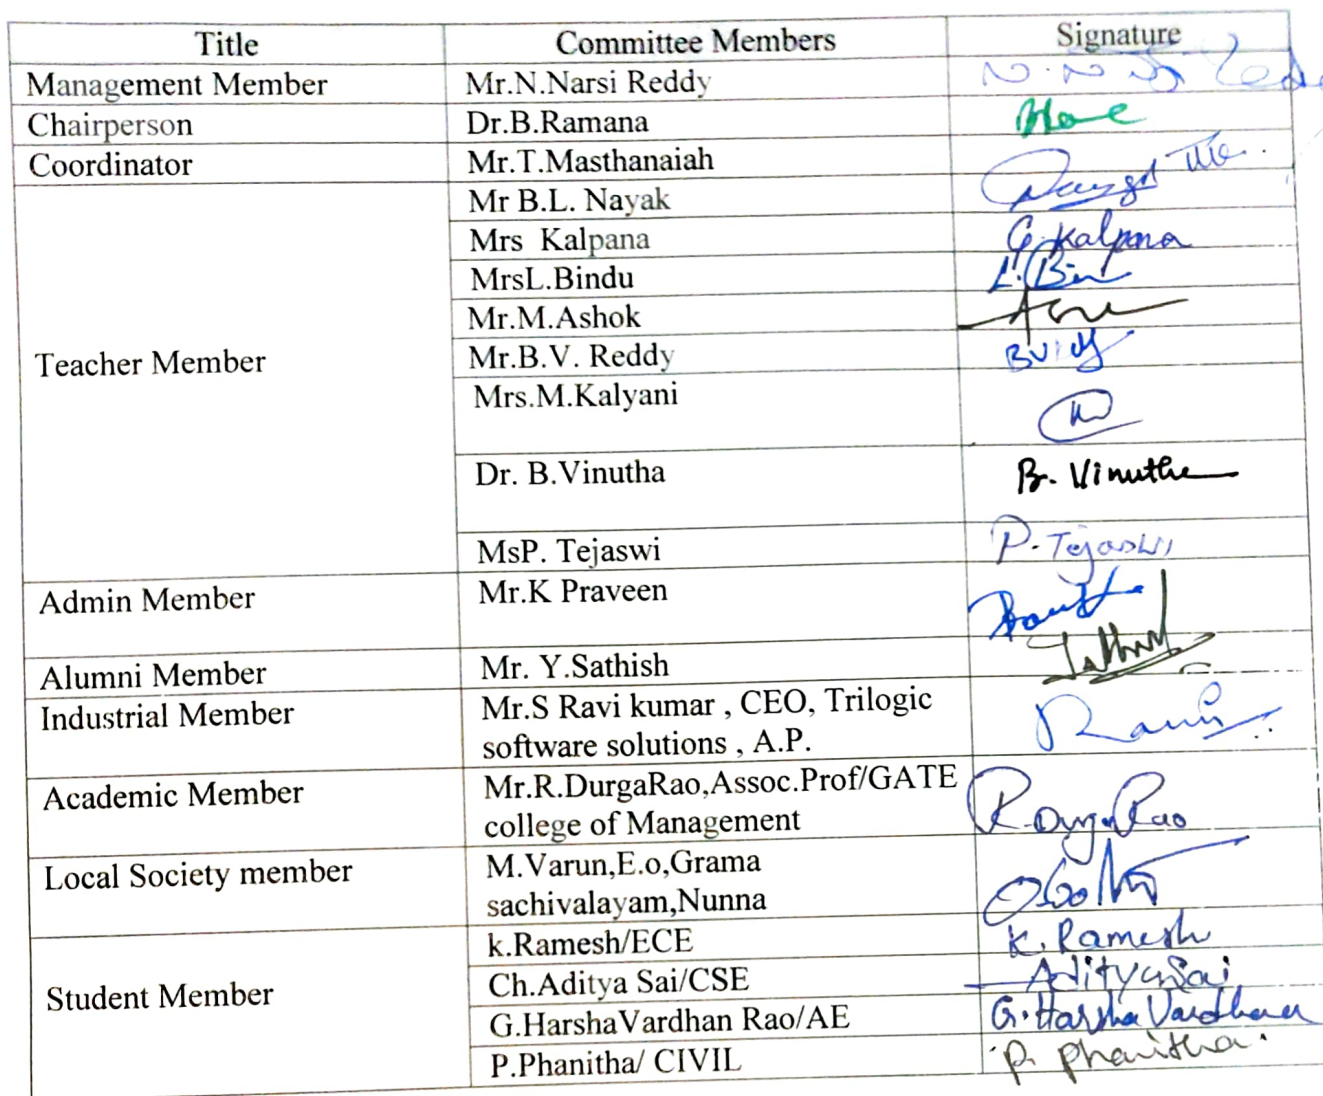 Title Committee Members Signature
Management Member Mr.N.Narsi Reddy
Chairperson Dr.B.Ramana
Coordinator Mr.T.Masthanaiah
Teacher Member Mr B.L. Nayak
Mrs Kalpana G. Kalpana
MrsL.Bindu
Mr.M.Ashok
Mr.B.V. Reddy
Mrs.M.Kalyani
Dr. B.Vinutha B. Vinutha
MsP. Tejaswi P. Tejaswi
Admin Member Mr.K Praveen
Alumni Member Mr. Y.Sathish
Industrial Member Mr.S Ravi kumar , CEO, Trilogic
software solutions , A.P.
Academic Member Mr.R.DurgaRao,Assoc.Prof/GATE
college of Management R. Durga Rao
Local Society member M.Varun,E.o,Grama
sachivalayam,Nunna
Student Member k.Ramesh/ECE K. Ramesh
Ch.Aditya Sai/CSE Aditya Sai
G.HarshaVardhan Rao/AE G. Harsha Vardhan
P.Phanitha/ CIVIL P. Phanitha.